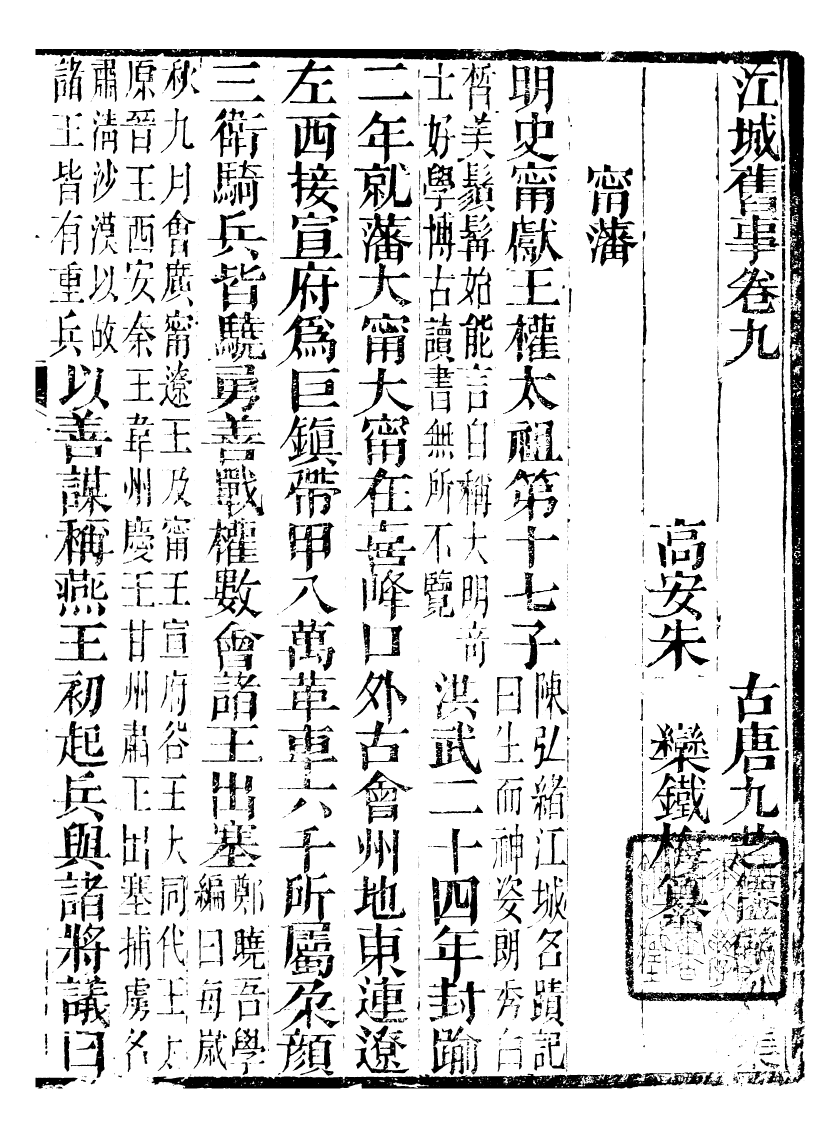 江城舊事卷九
古唐九芝僊
高安朱　欒鐵梅纂
甯藩
明史甯獻王權太祖第十七子
陳弘緒江城名蹟記
曰生而神姿朗秀白
晳美鬚髯始能言自稱大明奇
士好學博古讀書無所不覽
洪武二十四年封踰
二年就藩大甯大甯在喜峰口外古會州地東連遼
左西接宣府爲巨鎮帶甲八萬革車六千所屬朶顏
三衛騎兵皆驍勇善戰權數會諸王出塞
鄭曉吾學
編曰每歲
秋九月會廣甯遼王及甯王宣府谷王大同代王太
原晉王西安秦王韋州慶王甘州肅王出塞捕虜名
肅清沙漠以故
諸王皆有重兵
以善謀稱燕王初起兵與諸將議曰